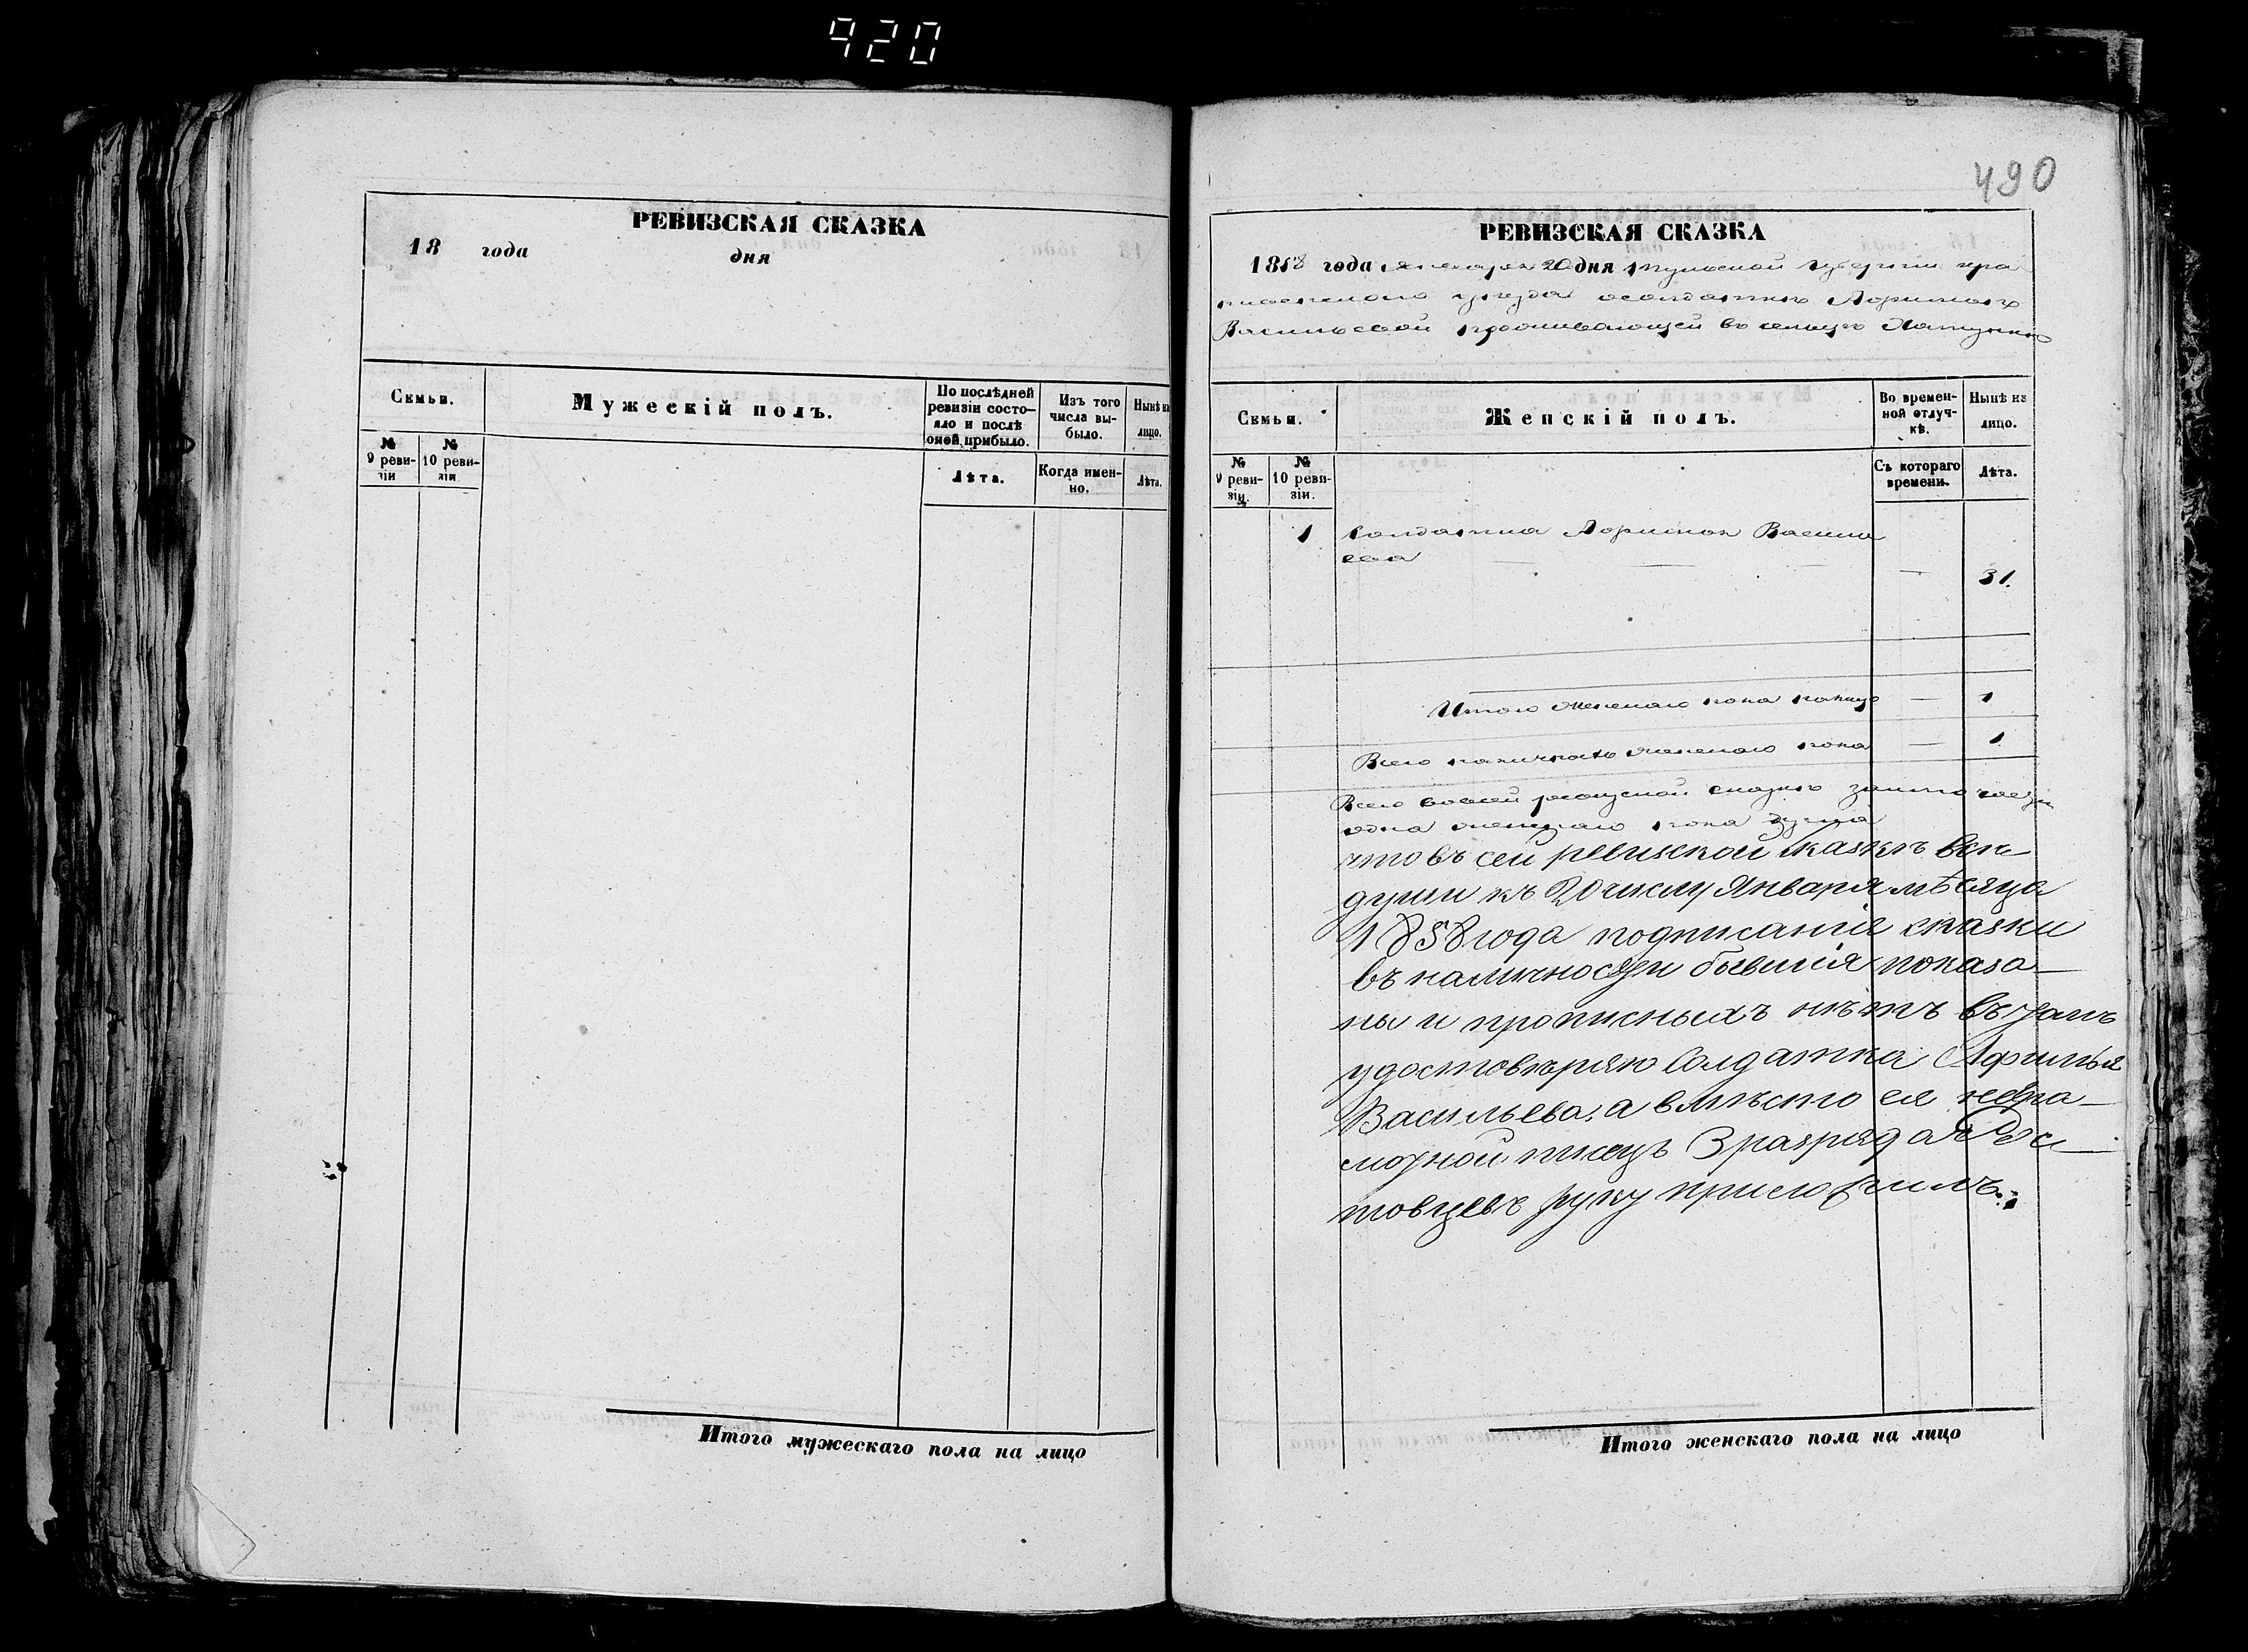 920
РЕВИЗСКАЯ СКАЗКА
18 года дня
Семьи.
Мужескій полъ.
По послѣдней ревизіи состояло и послѣ оной прибыло.
Изъ того числа выбыло.
Нынѣ на лицо.
№ 9 ревизіи
№ 10 ревизіи.
Лѣта.
Когда именно.
Лѣта.
Итого мужескаго пола на лицо
490
РЕВИЗСКАЯ СКАЗКА
1858 года января 20 дня Тульской губерніи кра
пивенскаго уѣзда солдатки
Васильевой проживающей въ сельцѣ
Семьи.
Женскій полъ.
Во временной отлучкѣ.
Нынѣ на лицо.
№ 9 ревизіи.
№ 10 ревизіи.
Съ котораго времени.
Лѣта.
1 Солдатка Василь
ева — — — — 31.
Итого женскаго пола налицо — 1
Всего наличнаго женскаго пола — 1
Всего во всей ревизской сказкѣ
одна женскаго пола душа
что въ сей ревизской сказкѣ всѣ
души къ 20 числу Января мѣсяца
1858 года подписанія сказки
въ наличности бывшія показа-
ны и прописныхъ нѣтъ въ томъ
удостовѣряю Солдатка Афимья
Васильева, а вмѣсто ея негра-
мотной писецъ 3 разряда Рос-
товцевъ руку приложилъ.
Итого женскаго пола на лицо